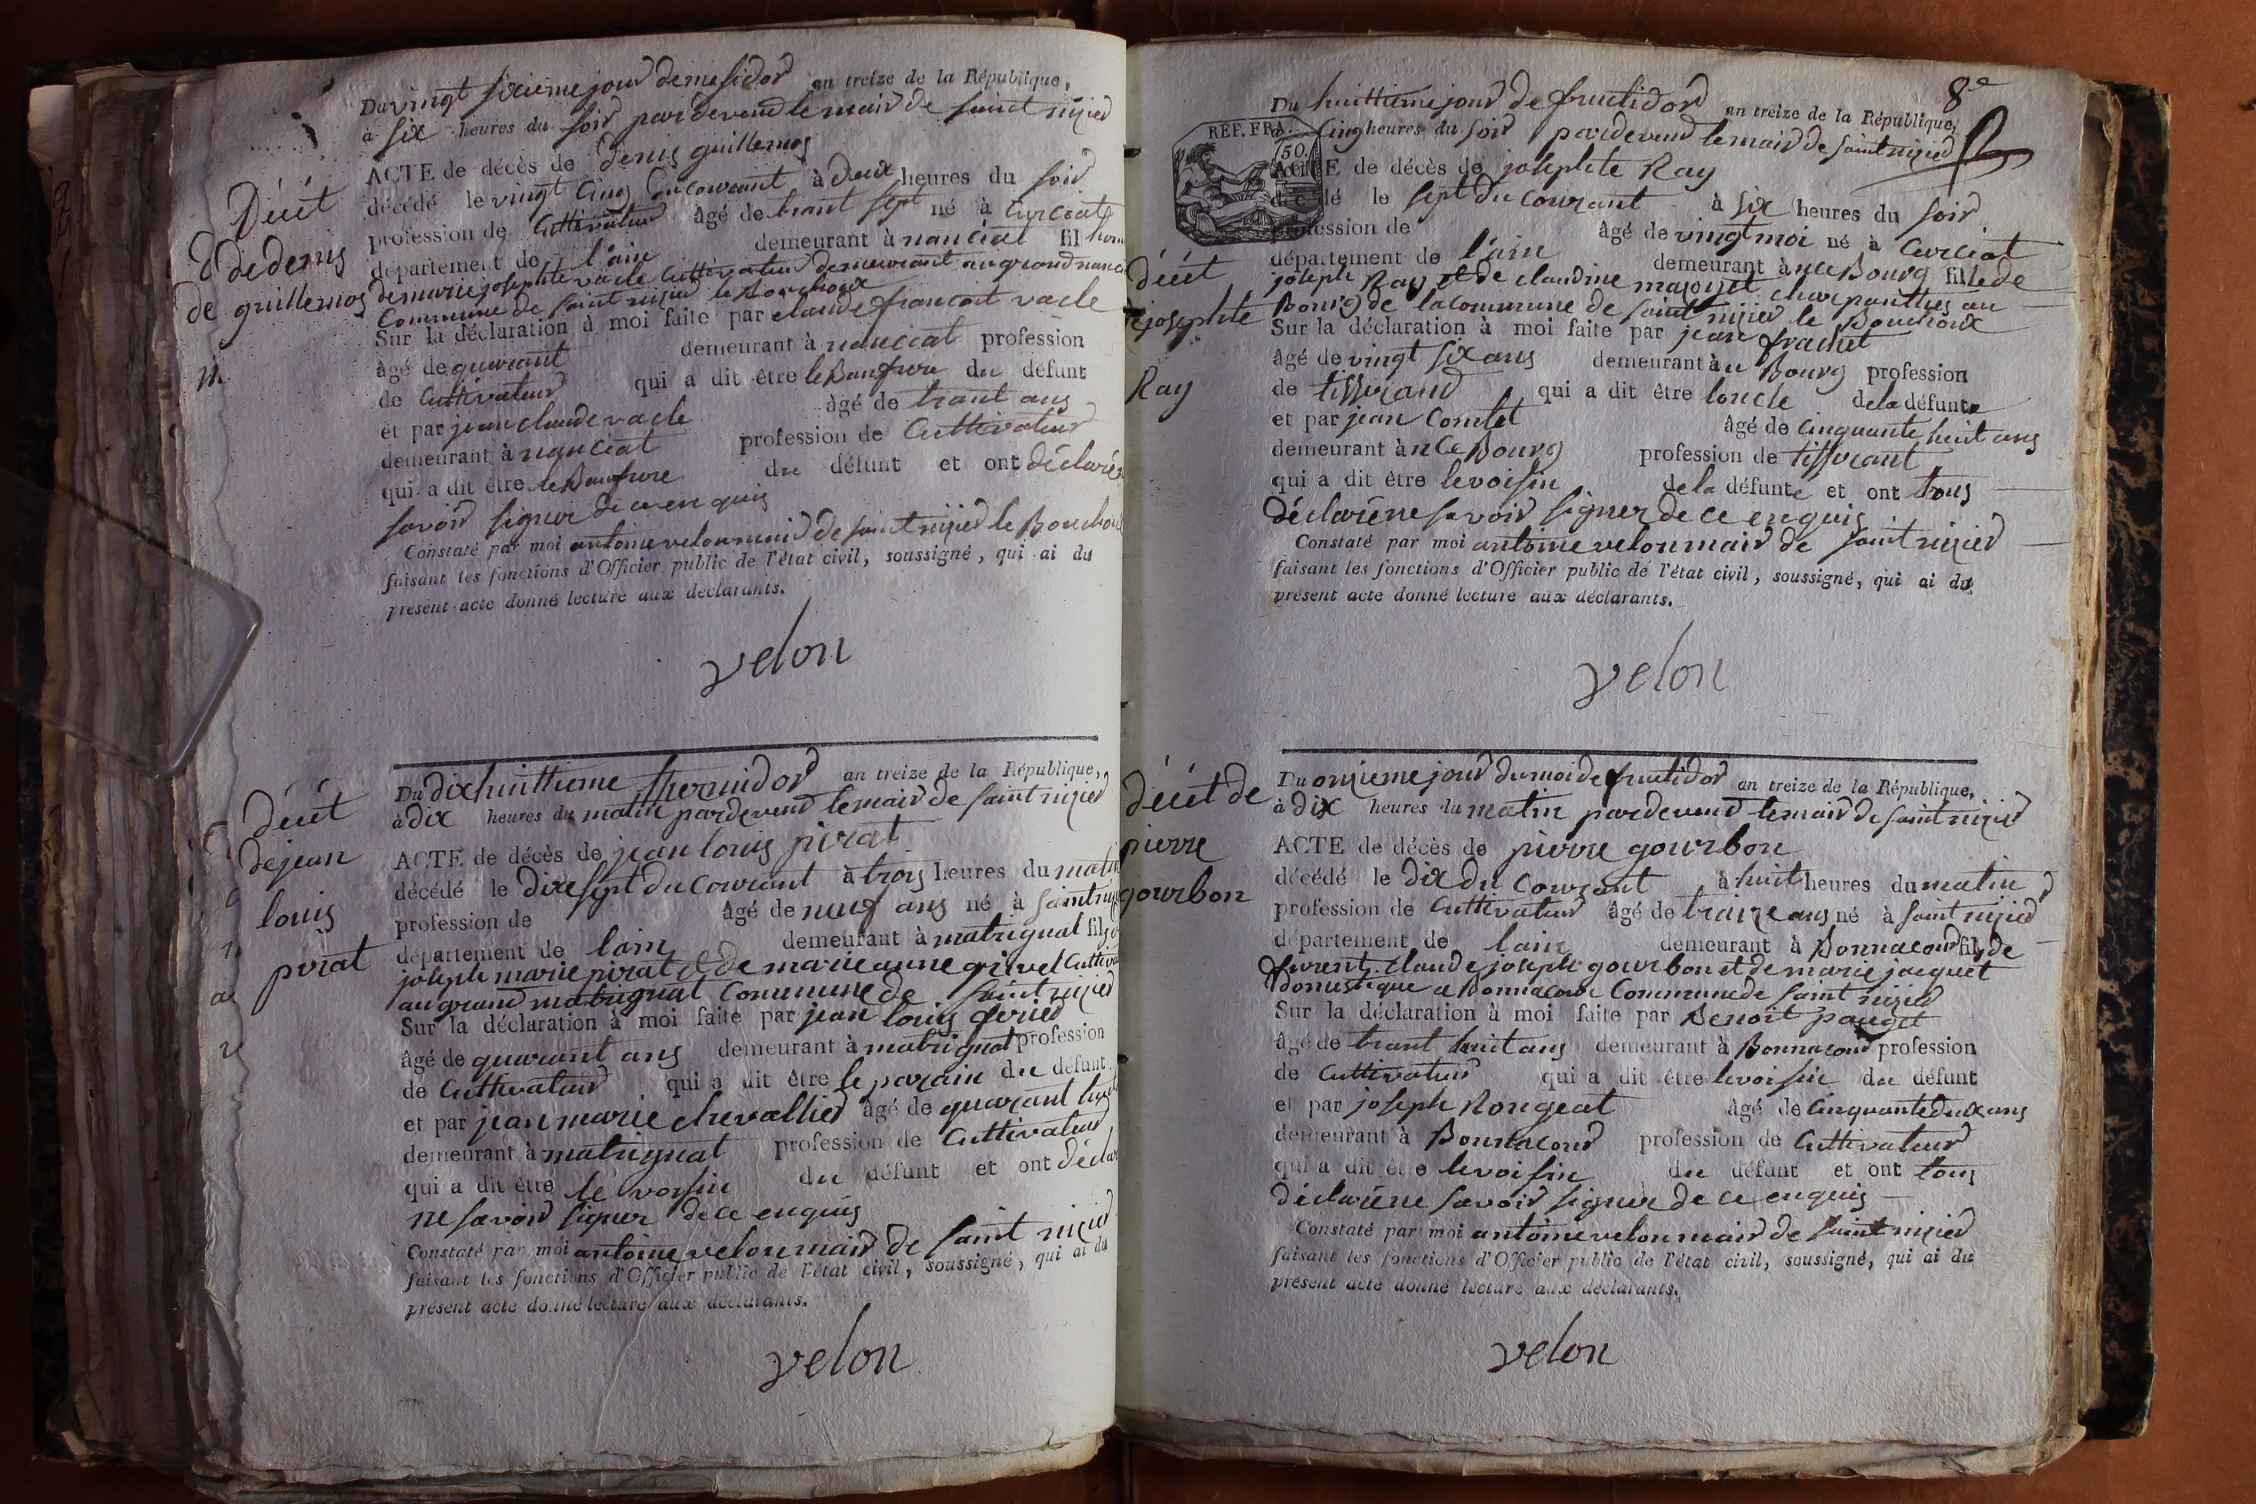 Du vingt sixieme jour de mesidor an treize de la République,
à six heures du soir pardevend le maird de saint nizied
ACTE de décès de denis guillemos
décédé le vingt cinq du courant à deux heures du soir
profession de Cultivateur âgé de trant sept né à Curciat
département de l'ain demeurant à nanciat fil
de marie josephte vacle Cultivateur demeurant au grand nanciat
Commune de saint nizied le Bouchoux
Sur la déclaration à moi faite par claude francoit vacle
âgé de quarant demeurant à nanciat profession
de Cultivateur qui a dit être le Baufrere du défunt
et par jean claude vacle âgé de trant ans
demeurant à nanciat profession de Cultivateur
qui a dit être le Baufrere du défunt et ont déclaré
savoir signer de ce enquis
Constaté par moi antoine velon maird de saint nizied le Bouchoux
faisant les fonctions d'Officier public de l'état civil, soussigné, qui ai du
présent acte donné lecture aux déclarants.
velon
Décét
de denis
de guillemos
Du dix huittieme thermidor an treize de la République,
à dix heures du matin pardevend le maird de saint nizied
ACTE de décès de jean louis pirat
décédé le dix sept du courant à trois heures du matin
profession de âgé de neuf ans né à saint nizied
département de lain demeurant à matrignat fils de
joseph marie pirat et de marie anne grivel Cultiva
au grand matrignat Commune de saint nizied
Sur la déclaration à moi faite par jean louis ferier
âgé de quarant ans demeurant à matrignat profession
de Cultivateur qui a dit être le parain du défunt
et par jean marie chevallier âgé de quarant
demeurant à matrignat profession de Cultivateur
qui a dit être le voisin du défunt et ont déclaré
ne savoir signer de ce enquis
Constaté par moi antoine velon maird de saint nizied
faisant les fonctions d'Officier public de l'état civil, soussigné, qui ai du
présent acte donné lecture aux déclarants.
velon
décét
de jean
louis
pirat
8e
REP. FRA.
Du huittieme jour de fructidor an treize de la République,
à Cinq heures du soir pardevend le maird de saint nizied
ACTE de décès de josephte Ray
décédé le sept du courant à six heures du soir
profession de âgé de vingt moi né à Curciat
département de l'ain demeurant à nce Bourg fille de
joseph Ray et de claudine majonet charpanthier au
Bourg de la commune de saint nizied le Bouchoux
Sur la déclaration à moi faite par jean frachet
âgé de vingt six ans demeurant à au Bourg profession
de tisserand qui a dit être loncle de la défunte
et par jean Comtet âgé de Cinquante huit ans
demeurant à nce Bourg profession de tisserant
qui a dit être le voisin de la défunte et ont tous
déclaré ne savoir signer de ce enquis
Constaté par moi antoine velon maird de saint nizied
faisant les fonctions d'Officier public de l'état civil, soussigné, qui ai du
présent acte donné lecture aux déclarants.
velon
décét
josephte
Ray
Du onzieme jour du moi de fructidor an treize de la République,
à dix heures du matin pardevend le maird de saint nizied
ACTE de décès de pierre gourbon
décédé le dix du Courant à huit heures du matin
profession de Cultivateur âgé de traize ans né à saint nizied
département de lain demeurant à Bonnacourd fils de
furent claude joseph gourbon et de marie jacquet
domestique a Bonnacour Commune de saint nizied
Sur la déclaration à moi faite par Benoit pauget
âgé de trant huit ans demeurant à Bonnacour profession
de Cultivateur qui a dit être le voisin du défunt
et par joseph Rongeat âgé de Cinquante deux ans
demeurant à Bonnacourd profession de Cultivateur
qui a dit être le voisin du défunt et ont tous
déclaré ne savoir signer de ce enquis
Constaté par moi antoine velon maird de saint nizied
faisant les fonctions d'Officier public de l'état civil, soussigné, qui ai du
présent acte donné lecture aux déclarants.
velon
décét de
pierre
gourbon